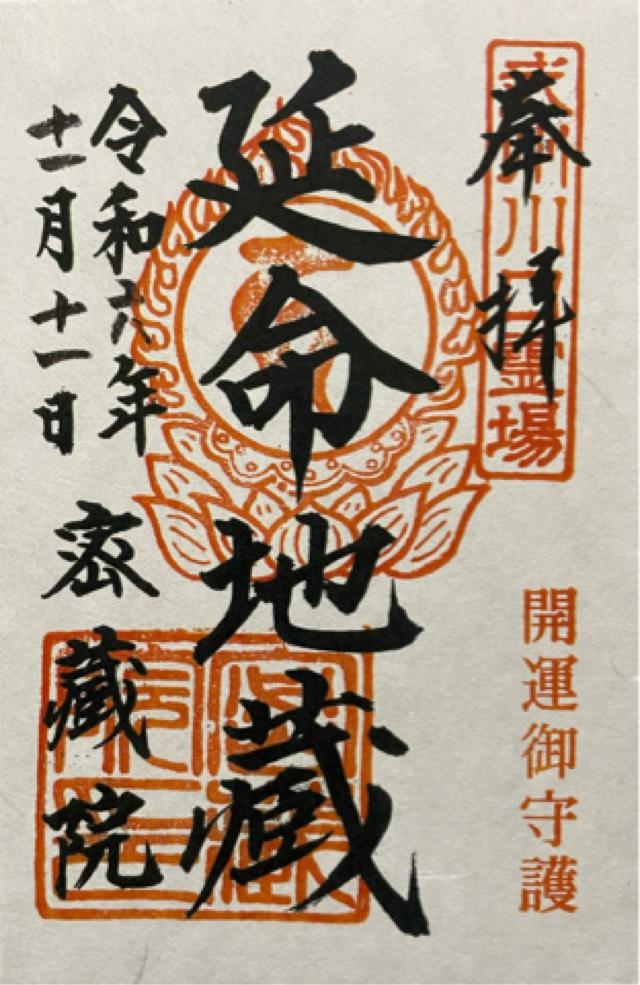 奉拝
武州川口霊場
開運御守護
延命地蔵
令和六年
十一月十一日
密蔵院